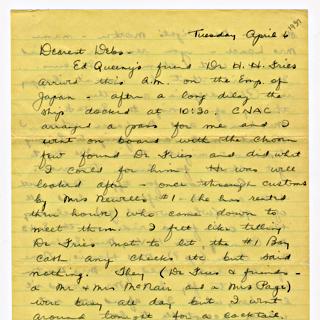 1937
Tuesday April 6
Dearest Debs -
Ed Queeny's friend Dr H. H. Fries
arrived this A.M. on the Emp. of
Japan - after a long delay the
ship docked at 10:30. CNAC
arranged a pass for me and I
went on board with the chosen
few found Dr Fries and did what
I could for him. He was well
looked after - once through customs
by Mrs Newell's #1 (she has rented
their house) who came down to
meet them. I felt like telling
Dr Fries not to let the #1 Boy
cash any checks etc but said
nothing. They (Dr Fries & friends -
a Mr & Mrs McNair and a Mrs Page)
were busy all day but I went
around tonight for a cocktail.